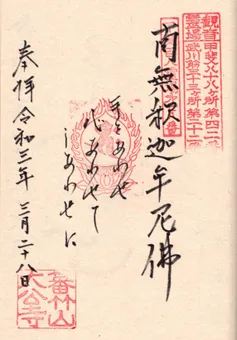 観音甲斐八十八ヶ所第四二
霊場武川筋三十三ヶ所第二十二
南無釈迦牟尼佛
手をあわせ
心あわせて
しあわせに
奉拝 令和三年 三月二十八日
番林山
大公寺